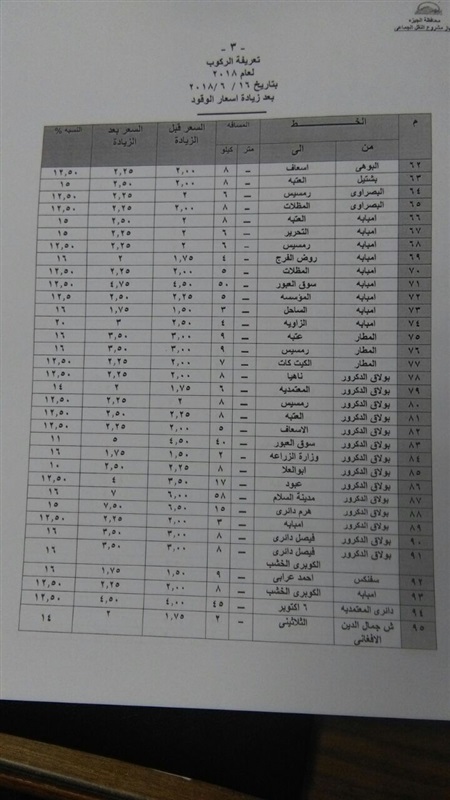 محافظة الجيزه
مشروع النقل الجماعى
- ٣ -
تعريفة الركوب
لعام ٢٠١٨
بتاريخ ١٦ / ٦ / ٢٠١٨
بعد زيادة اسعار الوقود
م الخط المسافه السعر قبل الزيادة السعر بعد الزيادة النسبه %
من الى كيلو متر
٦٢ البوهى اسعاف ٨ – ٢,٠٠ ٢,٢٥ ١٢,٥٠
٦٣ بشتيل العتبه ٨ – ٢,٠٠ ٢,٥٠ ١٥
٦٤ البصراوى رمسيس ٦ – ٢ ٢,٢٥ ١٢,٥٠
٦٥ البصراوى المظلات ٨ – ٢,٠٠ ٢,٢٥ ١٢,٥٠
٦٦ امبابه العتبه ٨ – ٢ ٢,٥٠ ١٥
٦٧ امبابه التحرير ٦ – ٢ ٢,٢٥ ١٥
٦٨ امبابه رمسيس ٦ – ٢ ٢,٢٥ ١٢,٥٠
٦٩ امبابه روض الفرج ٤ – ١,٧٥ ٢ ١٦
٧٠ امبابه المظلات ٥ – ٢,٠٠ ٢,٢٥ ١٢,٥٠
٧١ امبابه سوق العبور ٥٠ – ٤,٥٠ ٤,٧٥ ١٢,٥٠
٧٢ امبابه المؤسسه ٥ – ٢,٢٥ ٢,٥٠ ١٢,٥
٧٣ امبابه الساحل ٣ – ١,٥٠ ١,٧٥ ١٦
٧٤ امبابه الزاويه ٤ – ٢,٥٠ ٣ ٢٠
٧٥ المطار عتبه ٩ – ٣,٠٠ ٣,٥٠ ١٦
٧٦ المطار رمسيس ٩ – ٣,٠٠ ٣,٥٠ ١٦
٧٧ المطار الكيت كات ٧ – ٢,٠٠ ٢,٢٥ ١٢,٥٠
٧٨ بولاق الدكرور ناهيا ٨ – ٢,٠٠ ٢,٢٥ ١٢,٥٠
٧٩ بولاق الدكرور المعتمديه ٦ – ١,٧٥ ٢ ١٤
٨٠ بولاق الدكرور رمسيس ٨ – ٢ ٢,٢٥ ١٢,٥٠
٨١ بولاق الدكرور العتبه ٨ – ٢,٢٥ ٢,٥٠ ١٢,٥٠
٨٢ بولاق الدكرور الاسعاف ٥ – ٢,٠٠ ٢,٢٥ ١٢,٥٠
٨٣ بولاق الدكرور سوق العبور ٤٠ – ٤,٥٠ ٥ ١١
٨٤ بولاق الدكرور وزارة الزراعه ٢ – ١,٥٠ ١,٧٥ ١٦
٨٥ بولاق الدكرور ابوالعلا ٨ – ٢,٢٥ ٢,٥٠ ١٠
٨٦ بولاق الدكرور عبود ١٧ – ٣,٥٠ ٤ ١٢,٥٠
٨٧ بولاق الدكرور مدينة السلام ٥٨ – ٦,٠٠ ٧ ١٦
٨٨ بولاق الدكرور هرم دائرى ١٥ – ٦,٥٠ ٧,٥٠ ١٥
٨٩ بولاق الدكرور امبابه ٣ – ٢,٠٠ ٢,٢٥ ١٢,٥٠
٩٠ بولاق الدكرور فيصل دائرى ٨ – ٣,٠٠ ٣,٥٠ ١٦
٩١ بولاق الدكرور فيصل دائرى ٨ – ٣,٠٠ ٣,٥٠ ١٦
الكوبرى الخشب
٩٢ سفنكس احمد عرابى ٩ – ١,٥٠ ١,٧٥ ١٦
٩٣ امبابه الكوبرى الخشب ٨ – ٢,٠٠ ٢,٢٥ ١٢,٥٠
٩٤ دائرى المعتمديه ٦ اكتوبر ٤٥ – ٤,٠٠ ٤,٥٠ ١٢,٥٠
٩٥ ش جمال الدين الثلاثينى ٢ – ١,٧٥ ٢ ١٤
الافغانى